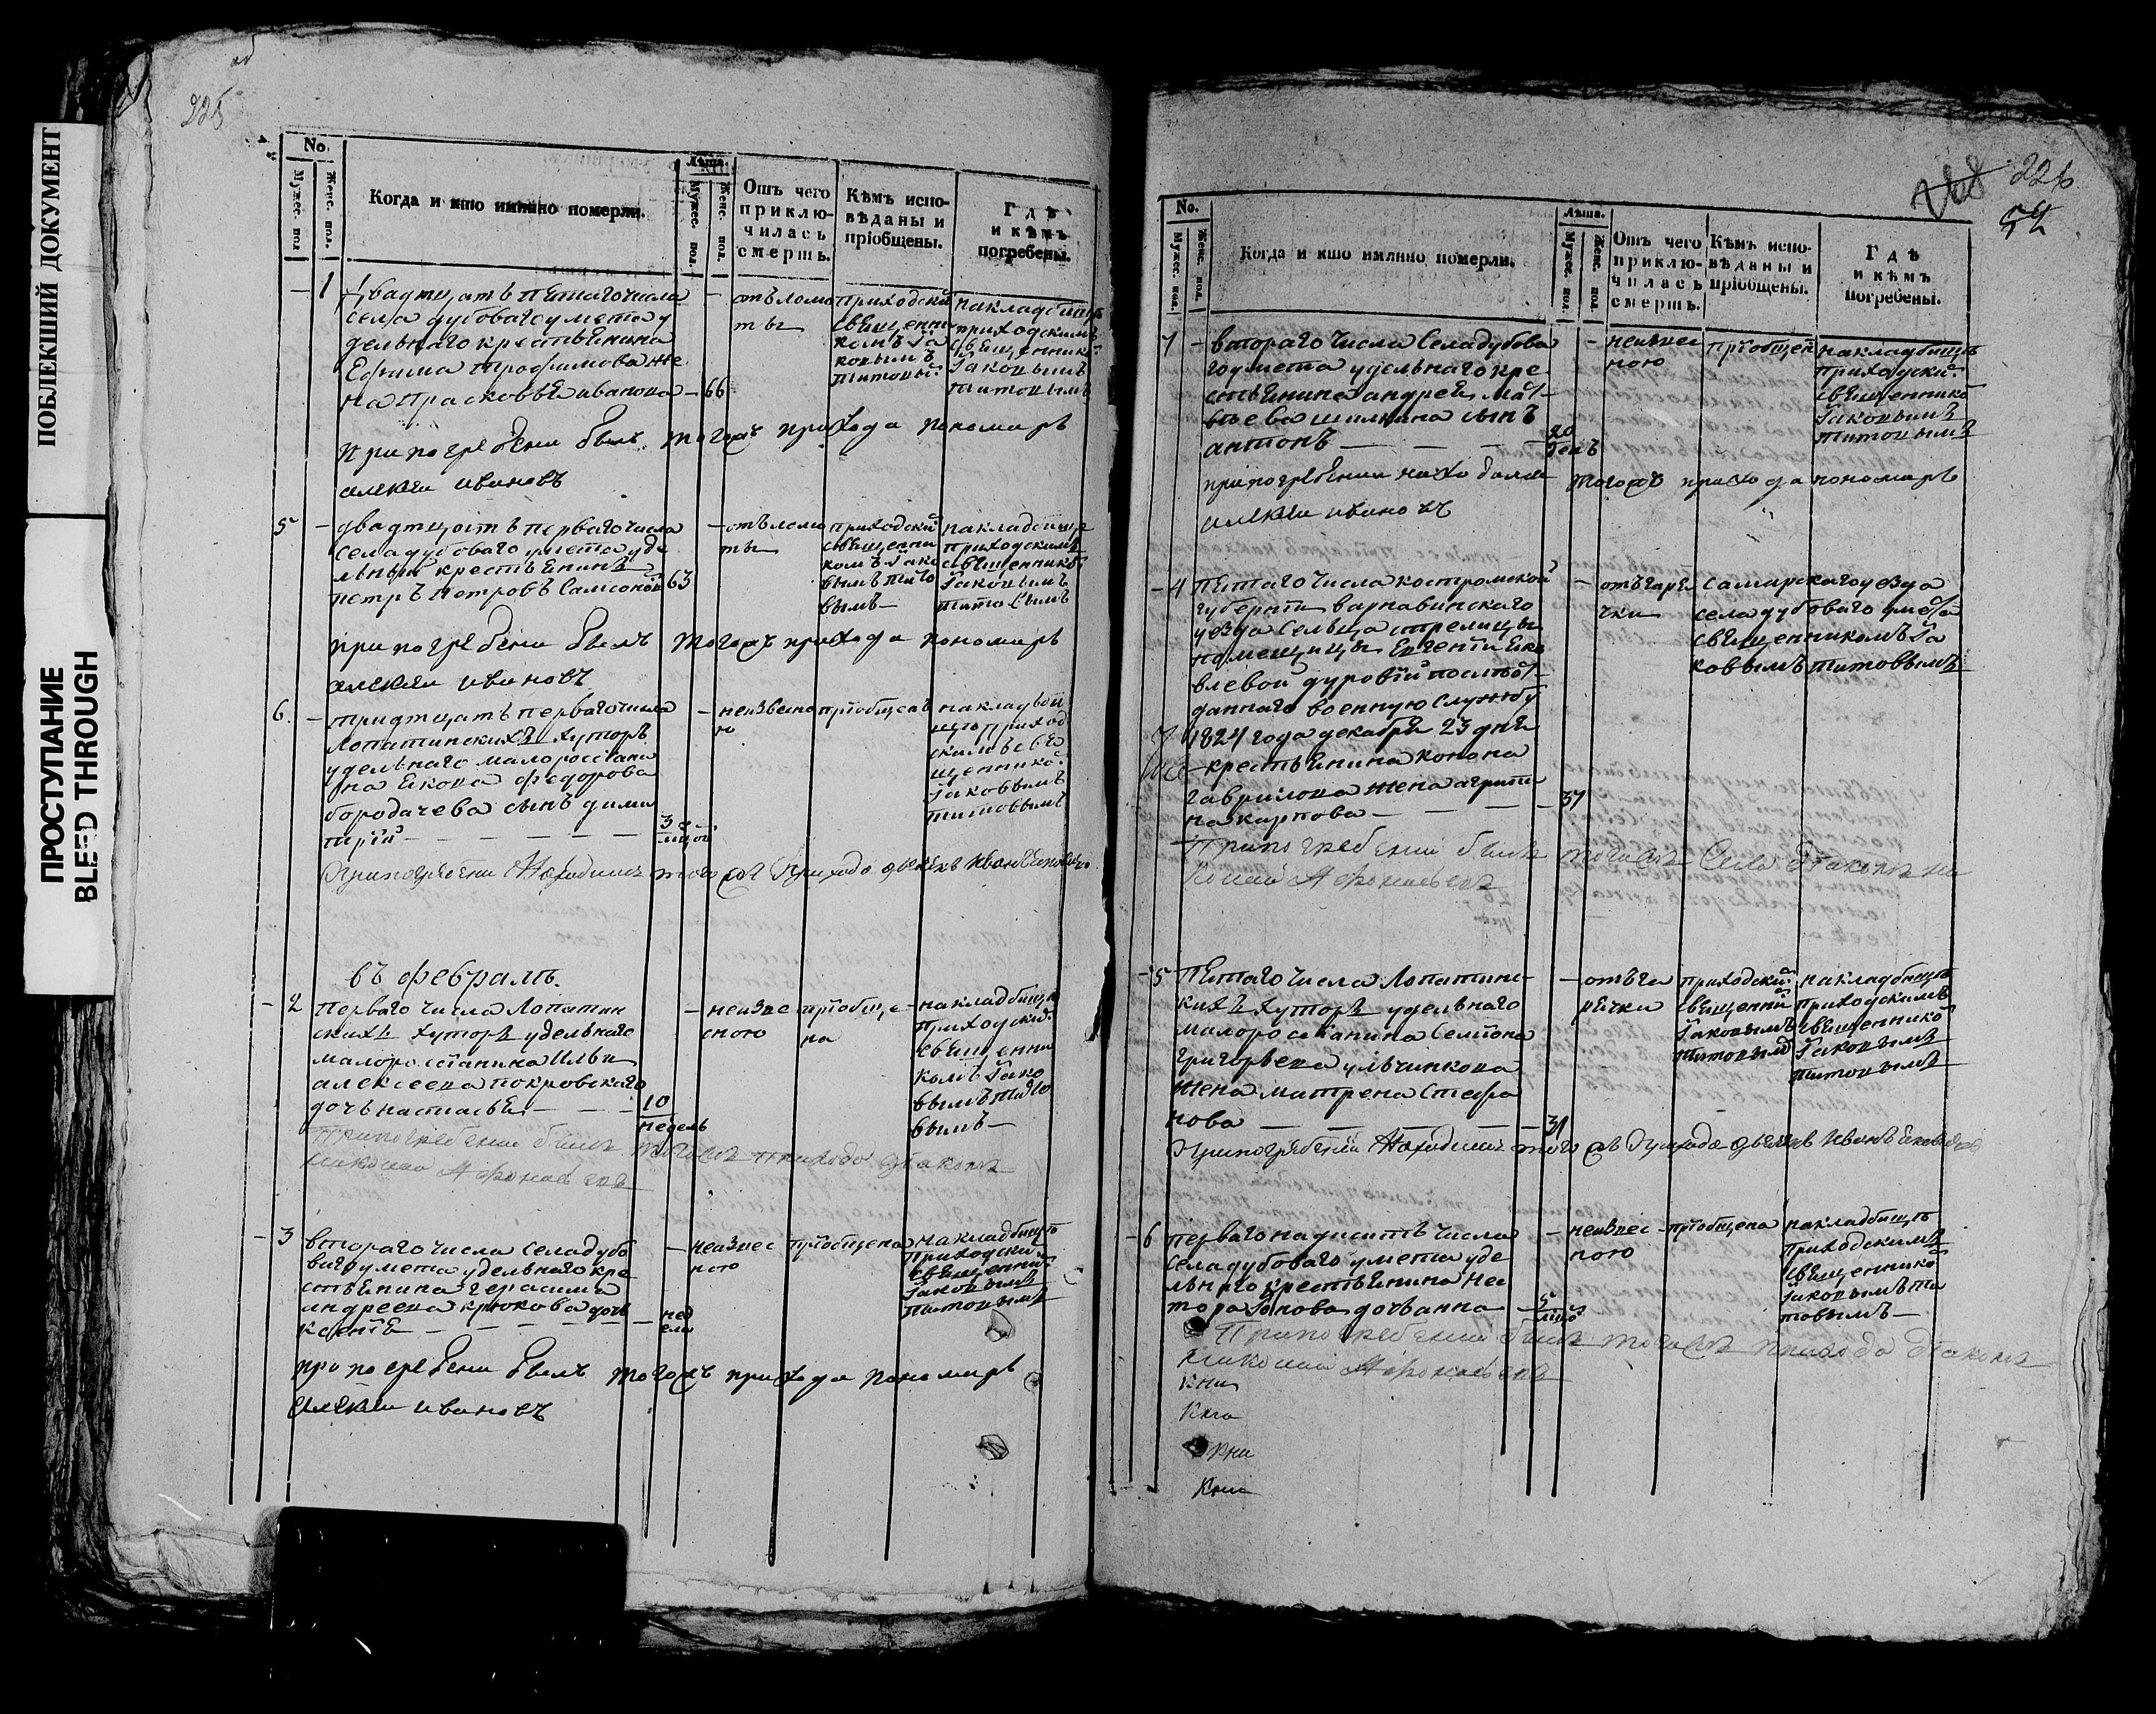 ПОБЛЕКШИЙ ДОКУМЕНТ
ПРОСТУПАНИЕ
BLEED THROUGH
225
No.
Мужес. пол.
Женс. пол.
Когда и кшо имянно померли.
Лѣша.
Мужес. пол.
Женс. пол.
Ошъ чего
приклю-
чилась
смершь.
Кѣмъ испо-
вѣданы и
пріобщены.
Гдѣ
и кѣмъ
погребены.
1 двадцать пятаго числа
села дубоваго умета у
дельнаго крестьянина
Ефима трофимова же
на Прасковья иванова 66
отъ ломо
ты
приходски
священни
комъ Іа
ковымъ
титовы
на кладбище
приходскимъ
священнико
Іаковымъ
титовымъ
При погребени былъ тогожъ прихода пономарь
алексей ивановъ
5 двадцать перваго числа
села дубоваго умета уде
льный крестьянинъ
петръ петровъ Самсонов 63
отъ ломо
ты
приходски
священни
комъ Іако
вымъ тито
вымъ
на кладбище
приходскимъ
священнико
Іаковымъ
титовымъ
при погребени былъ тогожъ прихода пономарь
алексей ивановъ
6. тридцать перваго числа
Лопатинскихъ хуторъ
удельнаго малороссияни
на Якова федорова
бородачева сынъ дими
трій
3 мцо
неизвесно
ю
пріобщенъ
на кладби
ще приход
скимъ свя
щеннико
Іаковымъ
титовымъ
При погребени находился тогожъ прихода дьячекъ Иванъ
въ февралѣ.
2 перваго числа Лопатин
скихъ хуторъ удельнаго
малоросіянина Ильи
алексеева покровскаго
дочь настасья
10
недель
неизве
сною
пріобще
на
на кладбище
приходски
священни
комъ Іако
вымъ тито
вымъ
При погребении былъ тогожъ прихода діаконъ
николай Афонасьевъ
3 втораго числа села дубо
ваго умета удельнаго кре
стьянина герасима
андреева крюкова дочь
ксенія
нед
ели
неизвес
ною
пріобщена
на кладбищѣ
приходски
священни
Іаковымъ
титовымъ
при погребени былъ тогожъ прихода пономарь
алексей ивановъ
226
54
No.
Мужес. пол.
Женс. пол.
Когда и кшо имянно померли.
Лѣша.
Мужес. пол.
Женс. пол.
Ошъ чего
приклю-
чилась
смершь.
Кѣмъ испо-
вѣданы и
пріобщены.
Гдѣ
и кѣмъ
погребены.
7 втораго числа Села дубова
го умета удельнаго кре
стьянина андрея мат
вьева шилкина сынъ
антонъ
20
денъ
неизвес
ною
пріобщен
на кладбищѣ
приходски
священнико
Іаковымъ
титовымъ
при погребении находился тогожъ прихода пономарь
алексей ивановъ
4 Пятаго числа костромской
губерніи варнавинскаго
уезда Сельца стрелицы
помещицы Евгеніи Яко
влевой дуровій после от
даннаго военную службу
1824 года декабря 23 дня
крестьянина конона
гаврилова жена агрипи
на карпова 37
отъ гаря
чки
Самарскаго уезда
села дубоваго умета
священникомъ Іа
ковымъ титовымъ
При погребении былъ тогожъ Села діаконъ ни
колай Афонасьевъ
5 Пятаго числа Лопатинс
кихъ хуторъ удельнаго
малоросіянина Семіона
григорьева ульчинкова
жена матрена Стефа
нова 31
отъ га
рячки
приходски
священни
Іаковымъ
титовым
на кладбище
приходскимъ
священнико
Іаковымъ
титовымъ
При погребении находился тогожъ прихода дьячекъ Иванъ
6 перваго надцать числа
села дубоваго умета уде
льнаго крестьянина Нес
тора дочь анна
5
мцо
неизвес
ною
пріобщена
на кладбище
приходскимъ
священнико
Іаковымъ ти
товымъ
При погребении былъ тогожъ прихода діаконъ
николай Афонасьевъ
Кни
Кни
Кни